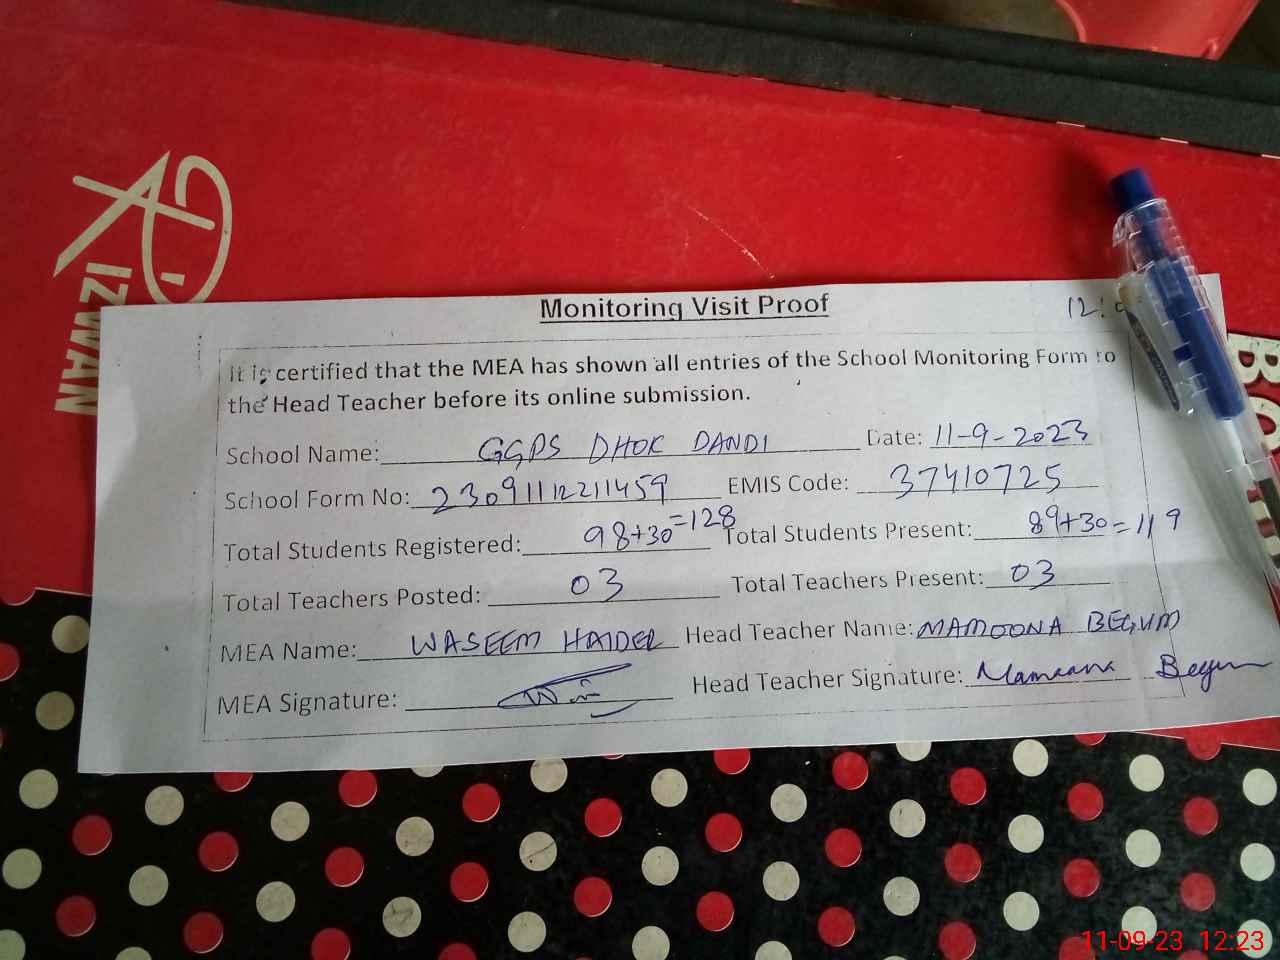 RIZWAN
Monitoring Visit Proof
It is certified that the MEA has shown all entries of the School Monitoring Form to
the Head Teacher before its online submission.
School Name: GGPS DHOK DANDI Date: 11-9-2023
School Form No: 23091112211459 EMIS Code: 37410725
Total Students Registered: 98+30=128 Total Students Present: 89+30=119
Total Teachers Posted: 03 Total Teachers Present: 03
MEA Name: WASEEM HAIDER Head Teacher Name: MAMOONA BEGUM
MEA Signature: Head Teacher Signature: Mamoona Begum
11-09-23 12:23